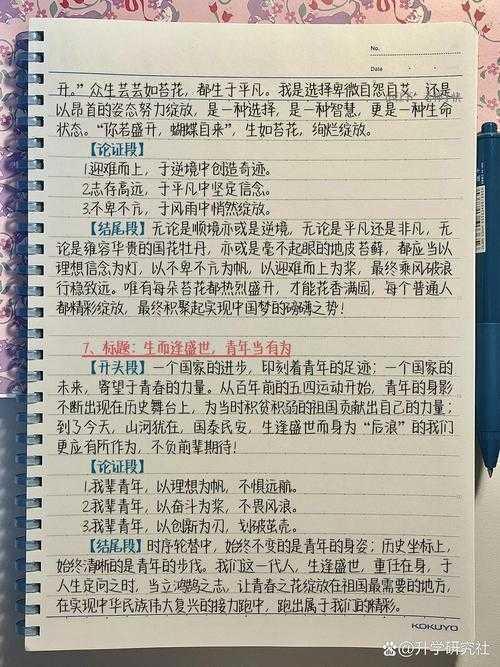 No.
Date
开。”众生芸芸如苔花，都生于平凡。我是选择卑微自怨自艾，还是
以昂首的姿态努力绽放，是一种选择，是一种智慧，更是一种生命
状态。“你若盛开，蝴蝶自来”，生如苔花，绚烂绽放。
【论证段】
1.迎难而上，于逆境中创造奇迹。
2.志存高远，于平凡中坚定信念。
3.不卑不亢，于风雨中悄然绽放。
【结尾段】无论是顺境亦或是逆境，无论是平凡还是非凡，无
论是雍容华贵的国花牡丹，亦或是毫不起眼的地皮苔藓，都应当以
理想信念为灯，以不卑不亢为帆，以迎难而上为桨，最终乘风破浪
行稳致远。唯有每朵苔花都热烈盛开，才能花香满园，每个普通人
都精彩绽放，最终积聚起实现中国梦的磅礴之势！
7、标题：生而逢盛世，青年当有为
【开头段】一个国家的进步，印刻着青年的足迹；一个国家的
未来，寄望于青春的力量。从百年前的五四运动开始，青年的身影
不断出现在历史舞台上，为当时积贫积弱的祖国贡献出自己的力量；
到了今天，山河犹在，国泰民安，生逢盛世而身为“后浪”的我们
更应有所作为，不负前辈期待！
【论证段】
1.我辈青年，以理想为帆，不惧远航。
2.我辈青年，以奋斗为桨，不畏风浪。
3.我辈青年，以创新为刃，划破茧壳。
【结尾段】时序轮替中，始终不变的是青年的身姿；历史坐标上，
始终清晰的是青年的步伐。我们这一代人，生逢盛世，重任在身，于
人生定向之时，当立鸿鹄之志，让青春之花绽放在祖国最需要的地方，
在实现中华民族伟大复兴的接力跑中，跑出属于我们的精彩。
KOKUYO
@升学研究社